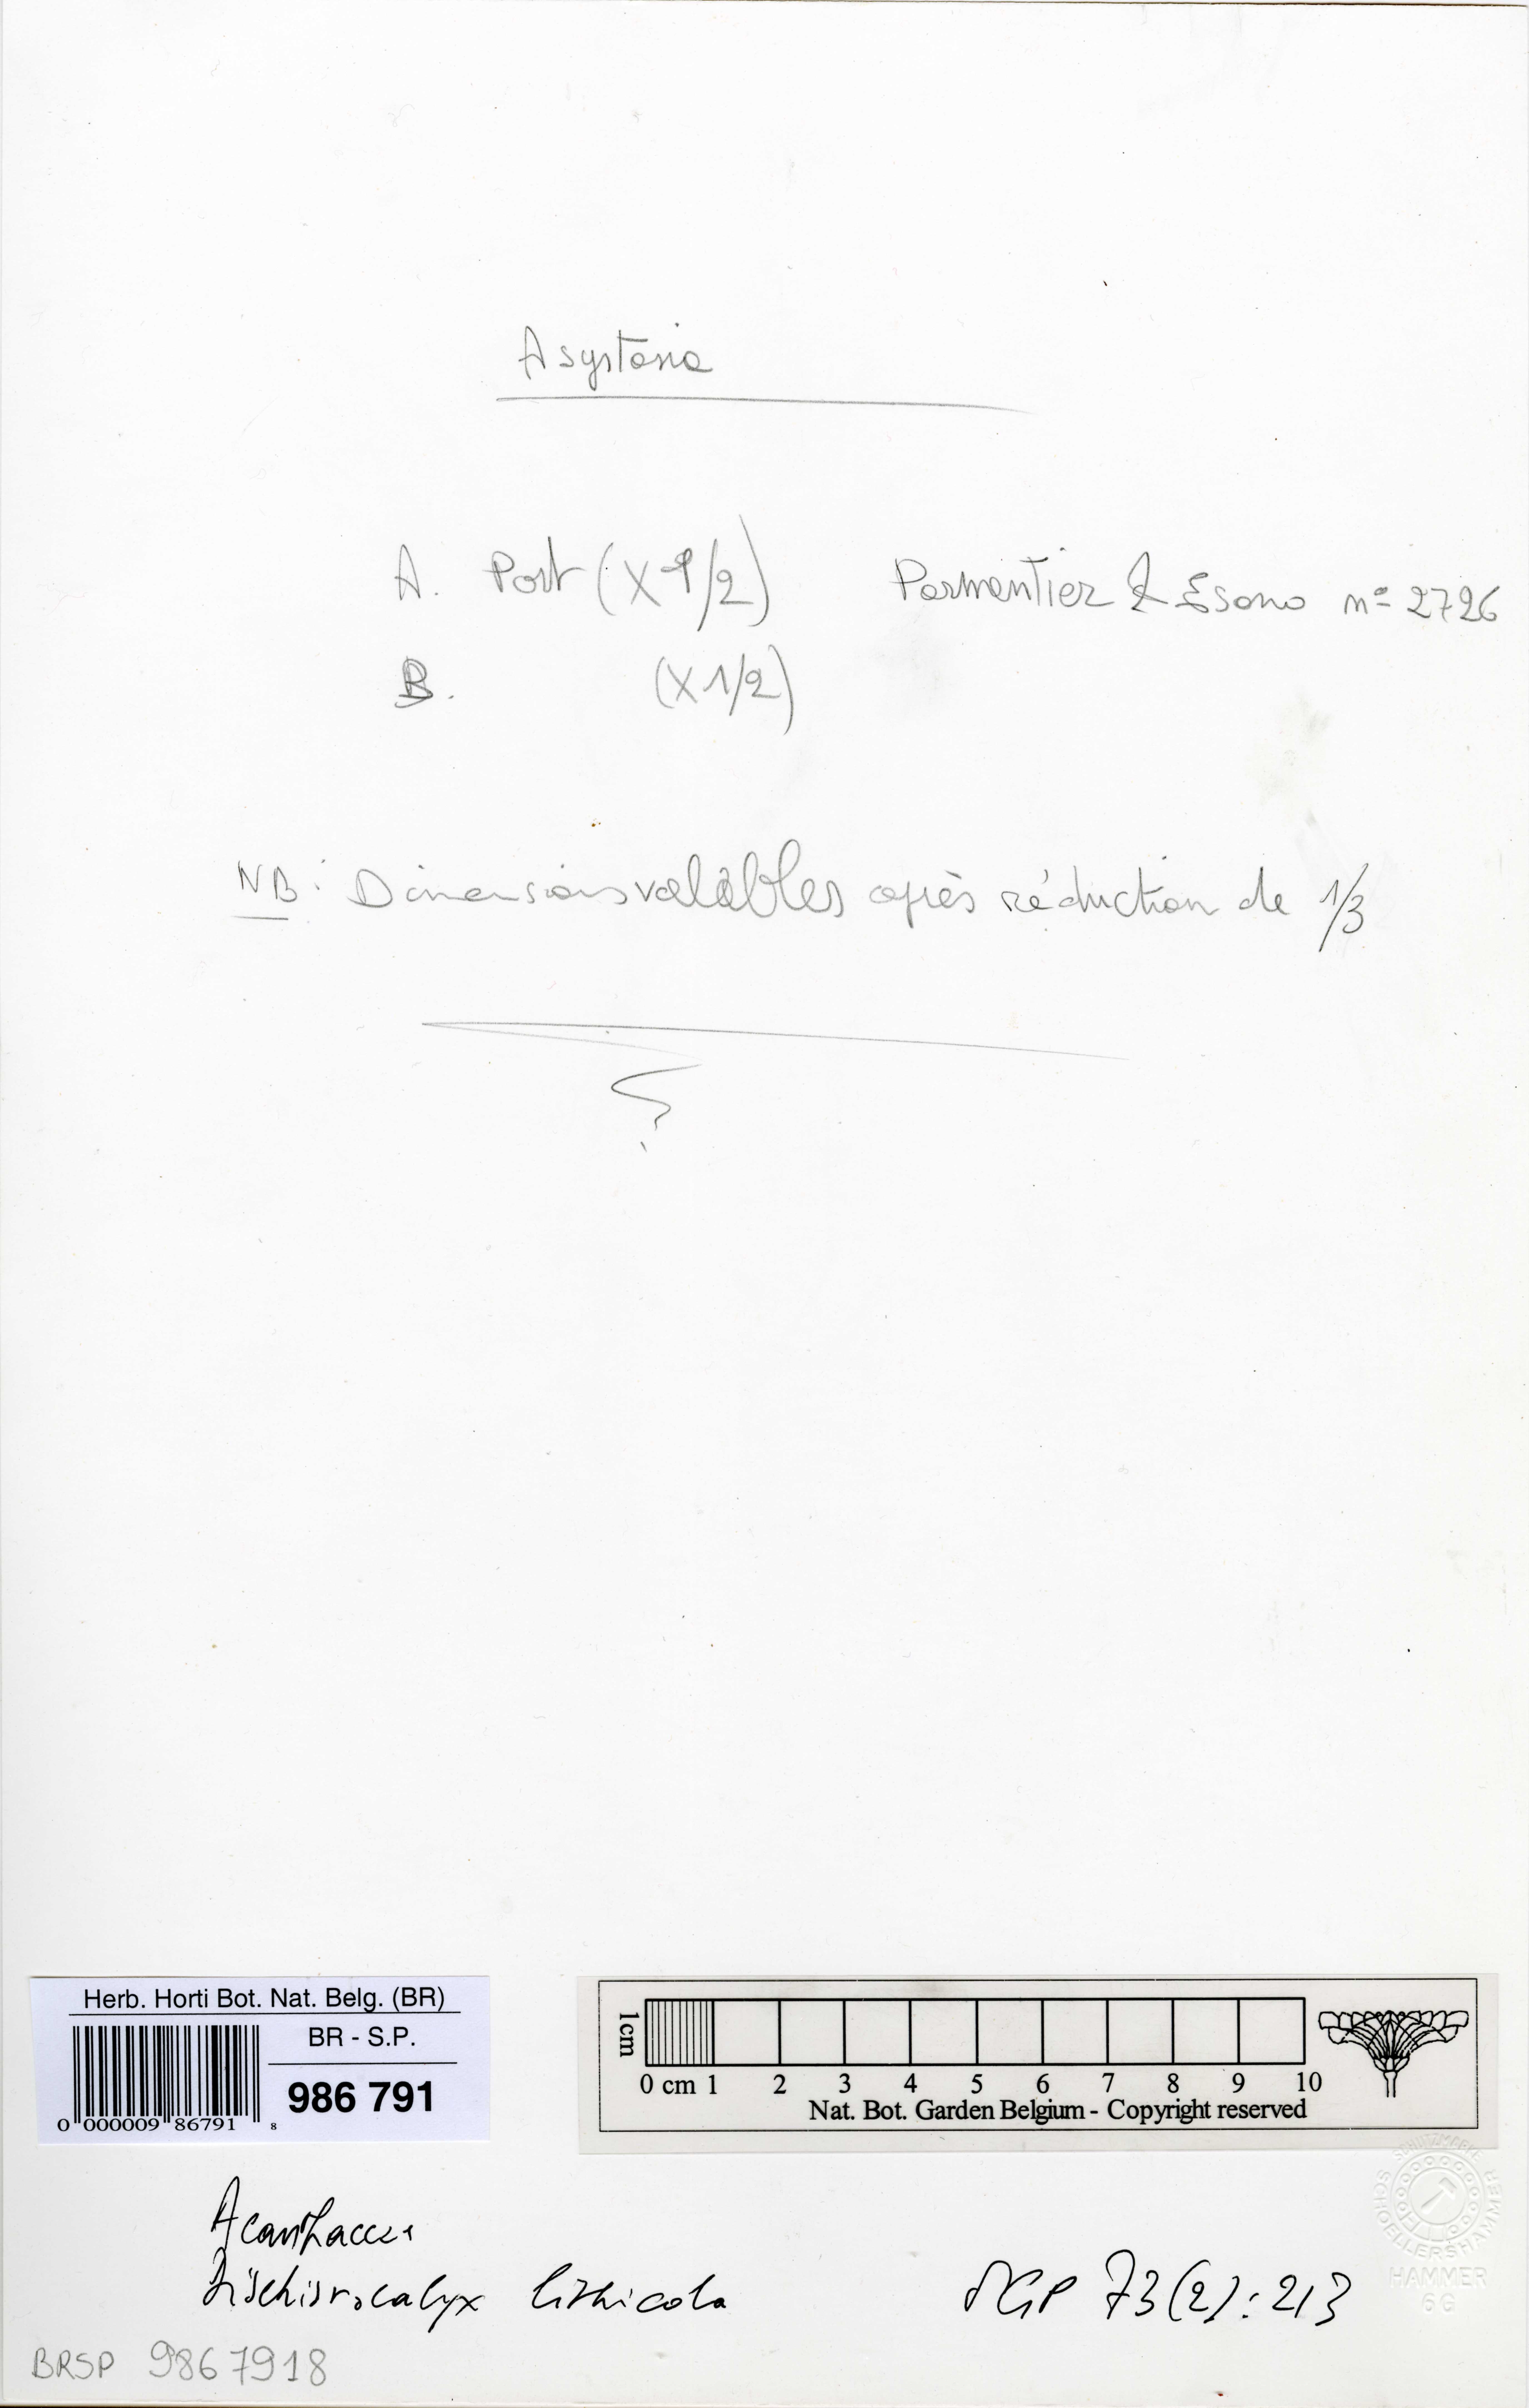 Asystasia
A. Port (X 1/2) Parmentier & Esono n° 2726
B. (X 1/2)
NB: Dimensions valables après réduction de 1/3
Herb. Horti Bot. Nat. Belg. (BR)
BR - S.P.
986 791
0 000009 86791 8
1cm
0 cm 1 2 3 4 5 6 7 8 9 10
Nat. Bot. Garden Belgium - Copyright reserved
SCHUTZMARKE
SCHOELLERSHAMMER
HAMMER
6G
Acanthaceae
Dischistocalyx lithicola 73(2): 213
BRSP 9867918